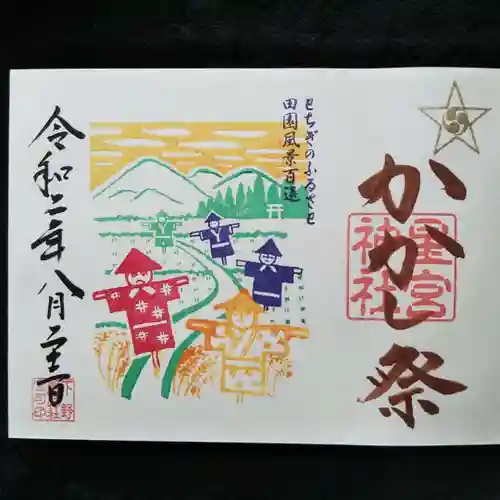 かかし祭
星宮
神社
とちぎのふるさと
田園風景百選
令和二年八月二十一日
下野